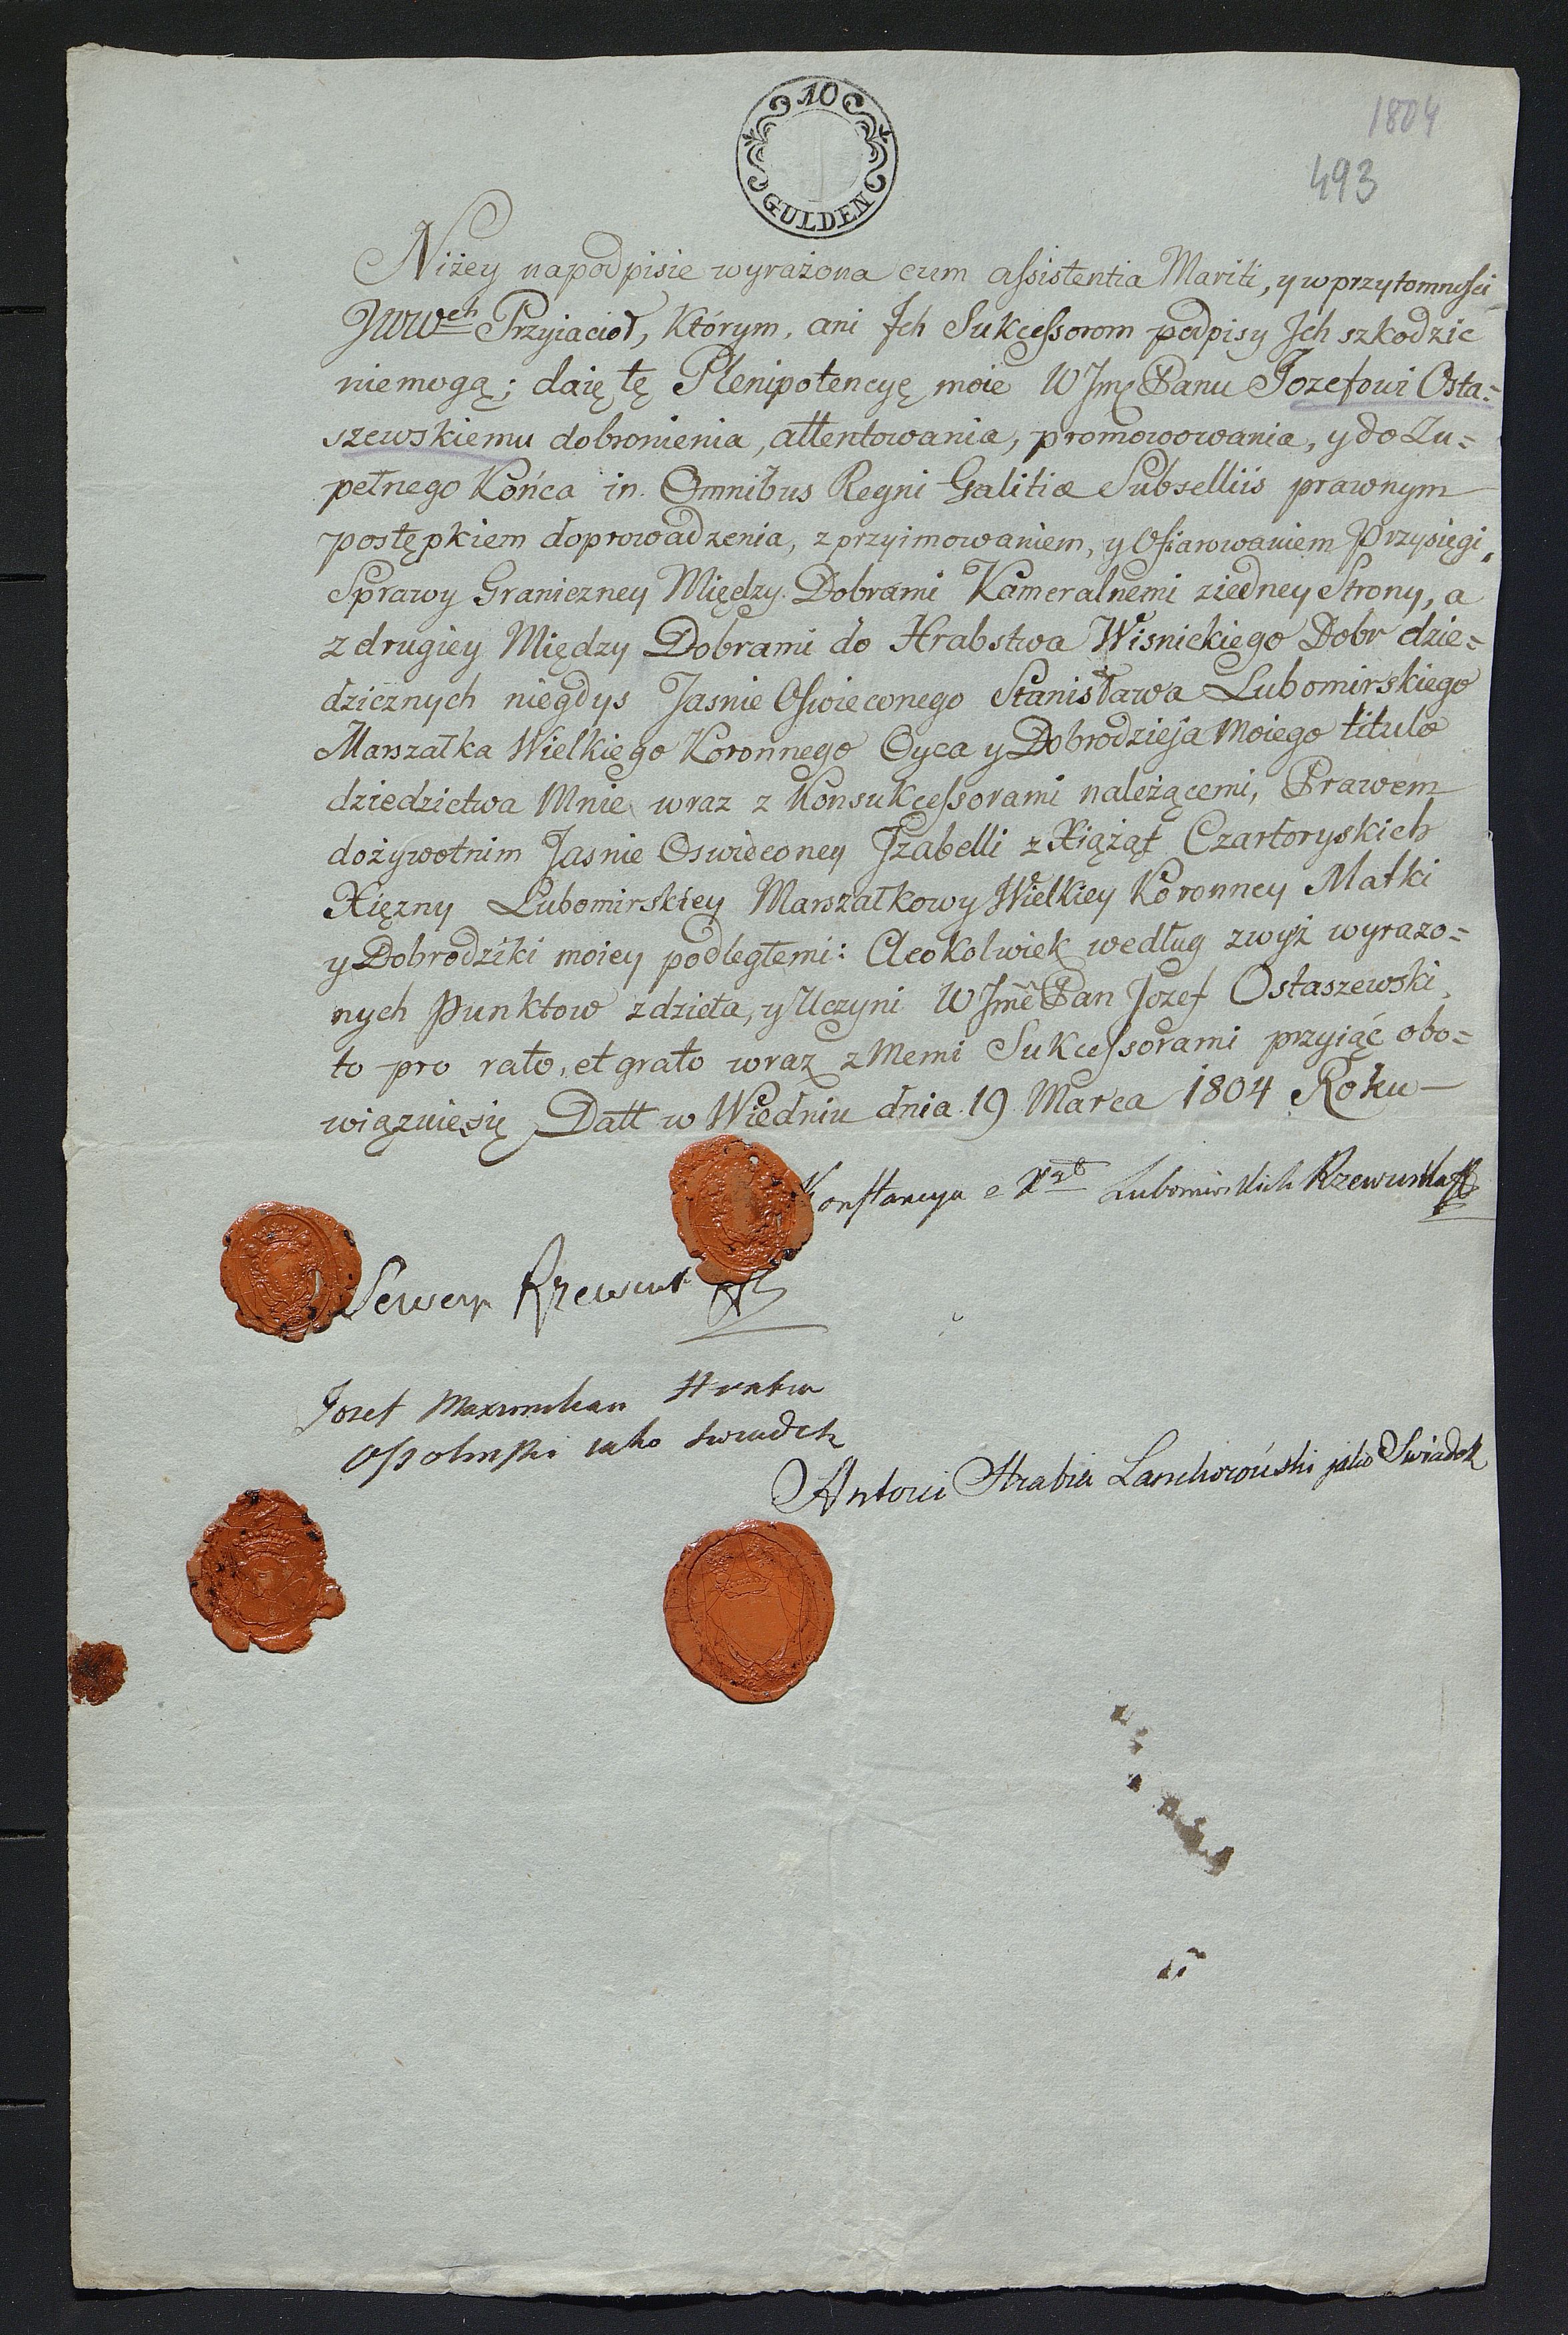 10
GULDEN
1804
493
Niżey na podpisie wyrażona cum assistentia Mariti, y w przytomności
JWWch Przyiacioł, którym, ani Ich Sukcessorom podpisy Ich szkodzic
niemogą; daię tę Plenipotencyę moie W Jmć Panu Jozefowi Osta=
szewskiemu dobronienia, attentowania, promowowania, y do Zu=
pełnego Końca in Omnibus Regni Galitiæ Subselliis prawnym
postępkiem doprowadzenia, z przyimowaniem, y Ofiarowaniem Przysięgi,
Sprawy Graniczney Między Dobrami Kameralnemi ziedney Strony, a
z drugiey Między Dobrami do Hrabstwa Wisnickiego Dobr dzie=
dzicznych niegdys Jasnie Oswieconego Stanisława Lubomirskiego
Marszałka Wielkiego Koronnego Oyca y Dobrodzieja Moiego titulo
dziedzictwa Mnie wraz z Konsukcessorami należącemi, Prawem
dożywotnim Jasnie Oswieconey Izabelli z Xiążąt Czartoryskich
Xięzny Lubomirskiey Marszałkowy Wielkiey Koronney Matki
y Dobrodziki moiey podległemi: A cokolwiek według zwyż wyrazo=
nych Punktow zdzieła, y Uczyni W Jmć Pan Jozef Ostaszewski,
to pro rato, et grato wraz z Memi Sukcessorami przyiąć obo=
wiązuiesię Datt w Wiedniu dnia 19 Marca 1804 Roku
Konstancya z Xżąt Lubomirskich Rzewuska
Sewery Rzewuski
Jozef Maxymilian Hrabia
Ossolinski iako swiadek
Antoni Hrabia Lanckoroński jako Swiadek